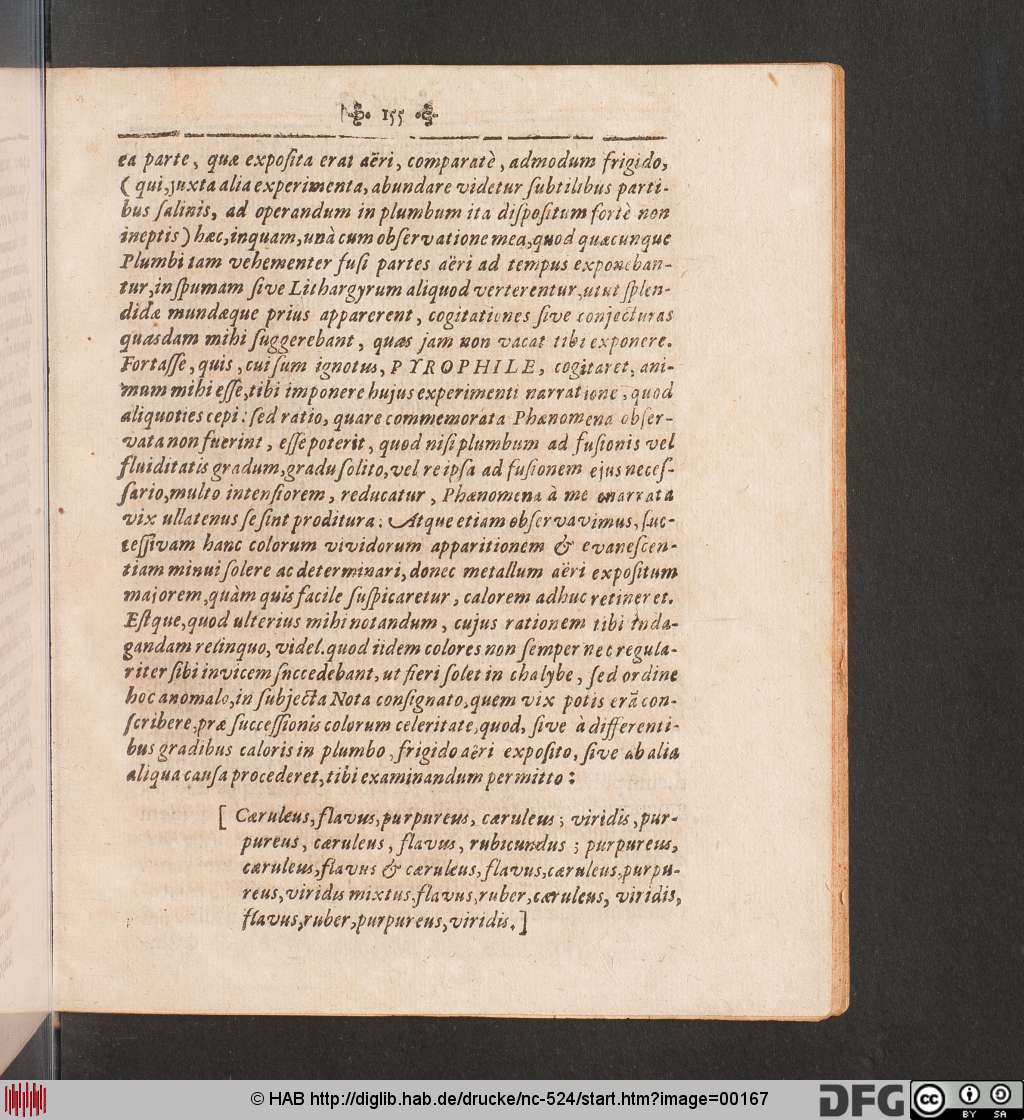 155
ea parte, quæ exposita erat aëri, comparatè, admodum frigido,
(qui, juxta alia experimenta, abundare videtur subtilibus parti-
bus salinis, ad operandum in plumbum ita dispositum fortè non
ineptis) hæc, inquam, unà cum observatione mea, quod quæcunque
Plumbi tam vehementer fusi partes aëri ad tempus exponeban-
tur, in spumam sive Lithargyrum aliquod verterentur, utut splen-
didæ mundæque prius apparerent, cogitationes sive conjecturas
quasdam mihi suggerebant, quas jam non vacat tibi exponere.
Fortasse, quis, cui sum ignotus, PYROPHILE, cogitaret, ani-
mum mihi esse, tibi imponere hujus experimenti narratione, quod
aliquoties cepi: sed ratio, quare commemorata Phænomena obser-
vata non fuerint, esse poterit, quod nisi plumbum ad fusionis vel
fluiditatis gradum, gradu solito, vel re ipsa ad fusionem ejus neces-
sario, multo intensiorem, reducatur, Phænomena à me enarrata
vix ullatenus se sint proditura: Atque etiam observavimus, suc-
cessivam hanc colorum vividorum apparitionem & evanescen-
tiam minui solere ac determinari, donec metallum aëri expositum
majorem, quàm quis facile suspicaretur, calorem adhuc retineret.
Estque, quod ulterius mihi notandum, cujus rationem tibi inda-
gandam relinquo, videl. quod iidem colores non semper nec regula-
riter sibi invicem snccedebant, ut fieri solet in chalybe, sed ordine
hoc anomalo, in subjecta Nota consignato, quem vix potis erã con-
scribere, præ successionis colorum celeritate, quod, sive à differenti-
bus gradibus caloris in plumbo, frigido aëri exposito, sive ab alia
aliqua causa procederet, tibi examinandum permitto:
[Cæruleus, flavus, purpureus, cæruleus; viridis, pur-
pureus, cæruleus, flavus, rubicundus; purpureus,
cæruleus, flavus & cæruleus, flavus, cæruleus, purpu-
reus, viridis mixtus, flavus, ruber, cæruleus, viridis,
flavus, ruber, purpureus, viridis.]
© HAB http://diglib.hab.de/drucke/nc-524/start.htm?image=00167
DFG
cc BY SA